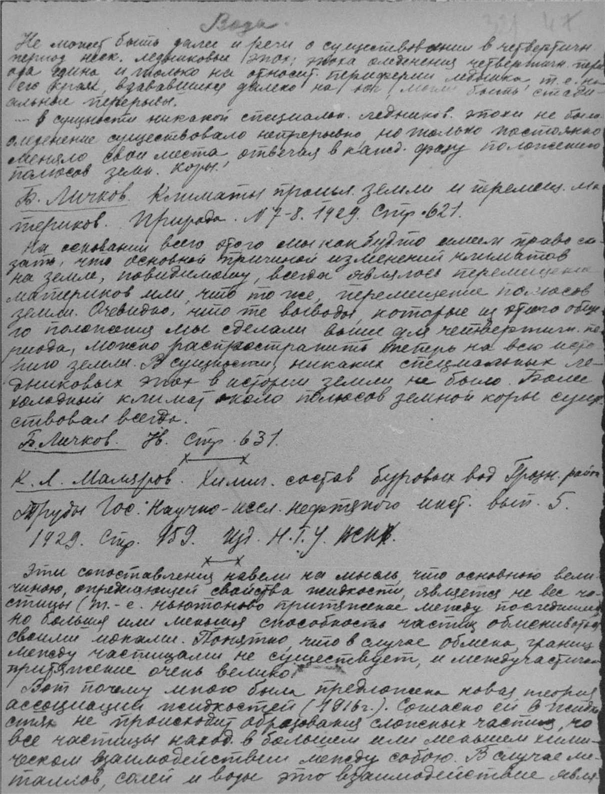 Вода.
47
Не может быть далее и речи о существовании в четвертичн.
период неск. ледниковых эпох; эпоха оледенения четвертичн. пери-
ода едина и только на относит. периферии ледника, т.е. на
его краях, далеко на юг могли быть
перерывы.
... в сущности никакой специальн. ледников. эпохи не было
оледенение существовало непрерывно но только постоянно
меняло свои места, отвечая в кажд. фазу положению
полюсов земн. коры!
Б. Личков. Климаты прошл. земли и перемещ. ма-
териков. Природа. N 7-8. 1929. Стр. 621.
На основании всего этого мы как будто имеем право ска-
зать, что основной причиной изменений климатов
на земле, повидимому, всегда являлось перемещение
материков или, что то же, перемещение полюсов
земли. Очевидно, что те выводы, которые из этого обще-
го положения мы сделали выше для четвертичн. пе-
риода, можно распространить теперь на всю исто-
рию земли. В сущности, никаких специальных ле-
дниковых эпох в истории земли не было. Более
холодный климат около полюсов земной коры суще-
ствовал всегда.
Б. Личков. Ib. Стр. 631.
К. Л. Маляров. Химич. состав буровых вод Грозн. района
Труды Гос. Научно-иссл. нефтяного инст. вып. 5.
1929. Стр. 159. Изд. Н.Т.У. ВСНХ.
Эти сопоставления навели на мысль, что основною вели-
чиною, определяющей свойства жидкости, является не вес ча-
стицы (т.-е. ньютоново притяжение между последними
но большая или меньшая способность частиц обмениваться
своими ионами. Понятно что в случае обмена, границ
между частицами не существует, и междучастичн.
притяжение очень велико.
Вот почему мною была предложена новая теория
ассоциации жидкостей (1916г.). Согласно ей в жидко-
стях не происходит образования сложных частиц, но
все частицы наход. в большем или меньшем хими-
ческом взаимодействии между собою. В случае ме-
таллов, солей и воды это взаимодействие явля-